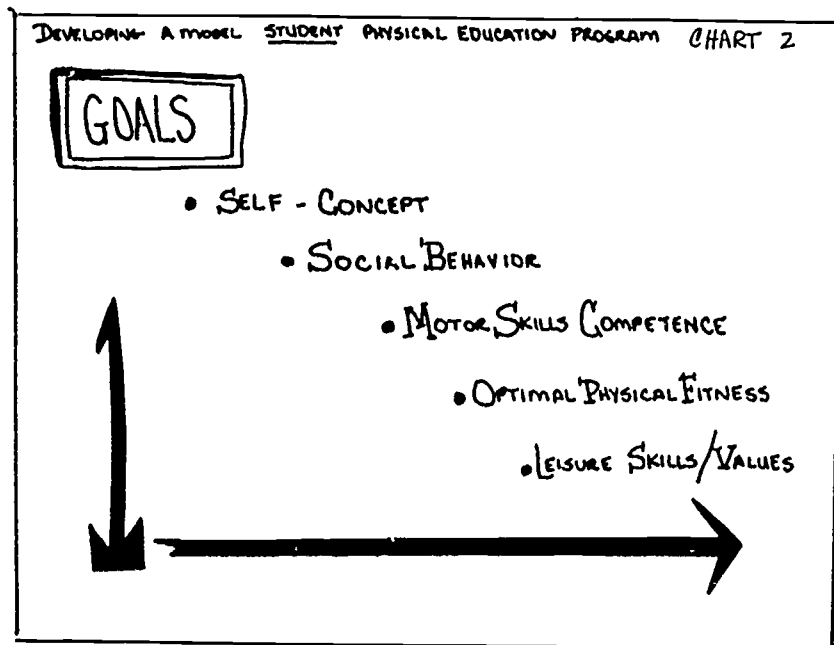 DEVELOPING A MODEL STUDENT PHYSICAL EDUCATION PROGRAM CHART 2
GOALS
• SELF - CONCEPT
• SOCIAL BEHAVIOR
• MOTOR SKILLS COMPETENCE
• OPTIMAL PHYSICAL FITNESS
• LEISURE SKILLS/VALUES